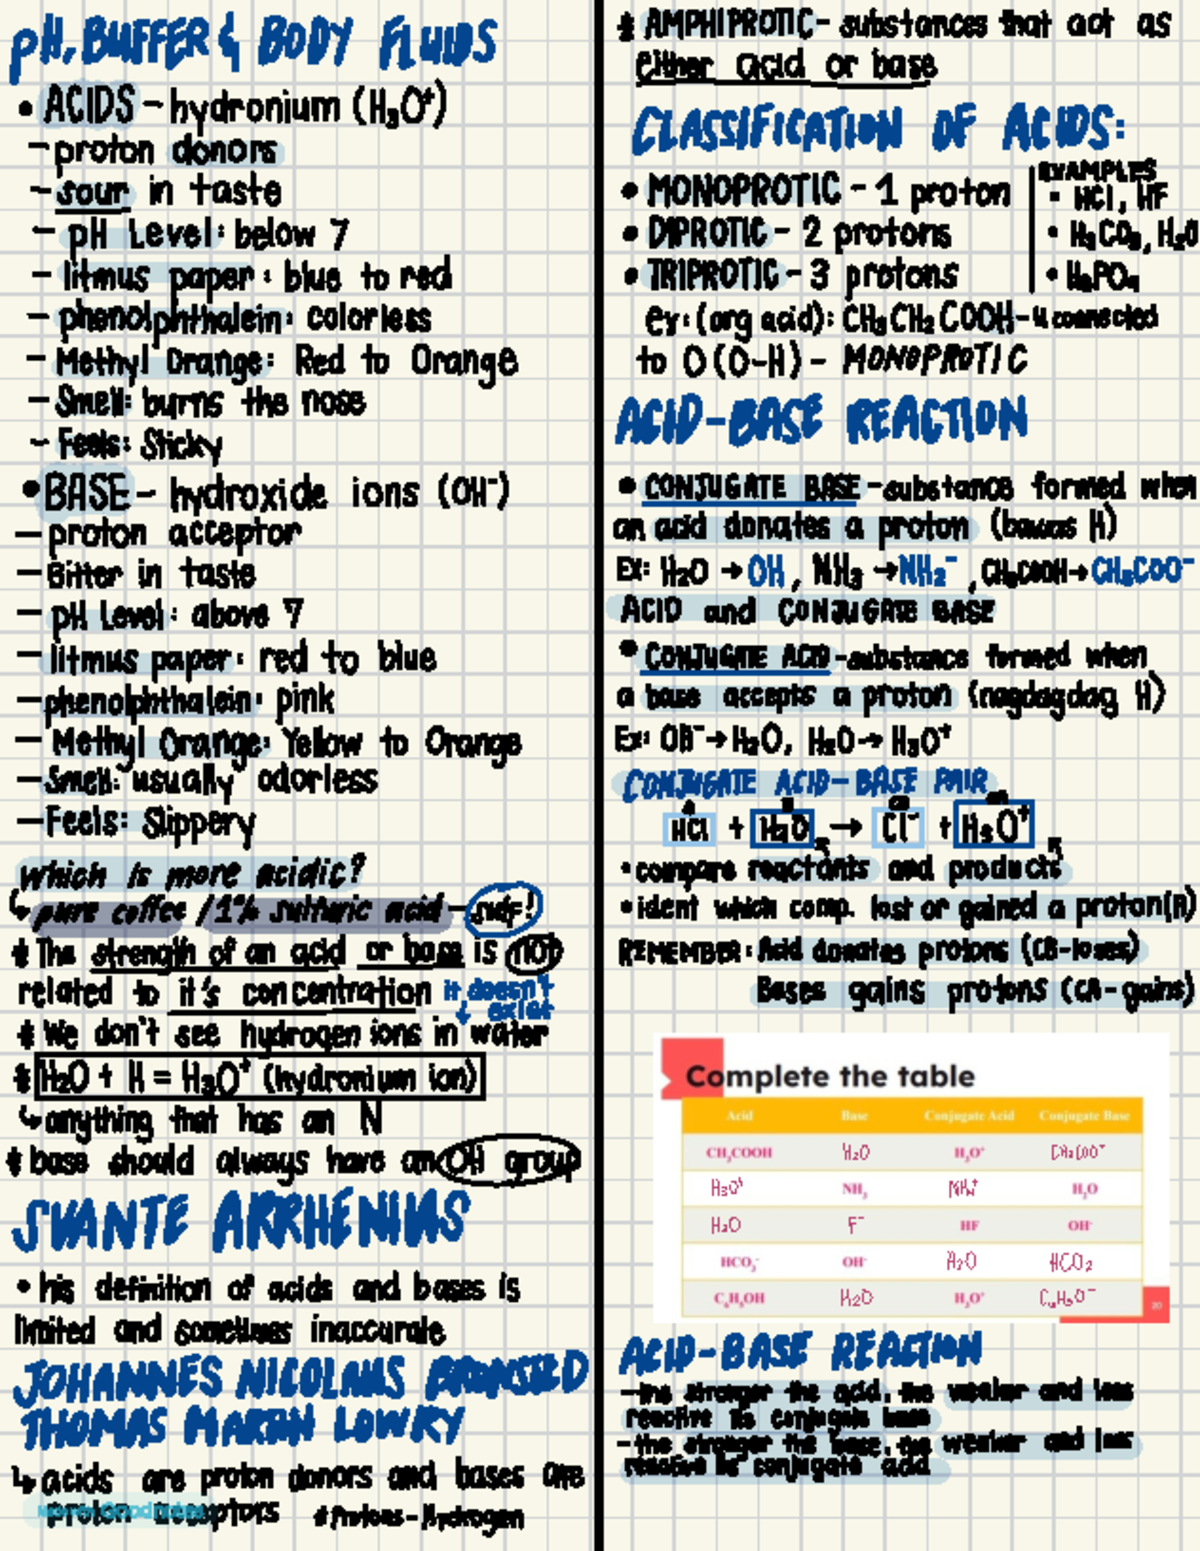 pH, BUFFER & BODY FLUIDS
• ACIDS – hydronium (H₃O⁺)
– proton donors
– sour in taste
– pH Level: below 7
– litmus paper: blue to red
– phenolphthalein: colorless
– Methyl Orange: Red to Orange
– Smell: burns the nose
– Feels: Sticky
• BASE – hydroxide ions (OH⁻)
– proton acceptor
– Bitter in taste
– pH Level: above 7
– litmus paper: red to blue
– phenolphthalein: pink
– Methyl Orange: Yellow to Orange
– Smell: usually odorless
– Feels: Slippery
which is more acidic?
↳ pure coffee / 1% sulfuric acid –
* The strength of an acid or base is not
related to it's concentration it doesn't
exist
* We don't see hydrogen ions in water
* H₂O + H = H₃O⁺ (hydronium ion)
↳ anything that has an N
* base should always have an OH group
SVANTE ARRHENIUS
• his definition of acids and bases is
limited and sometimes inaccurate
JOHANNES NICOLAUS BRONSTED
THOMAS MARTIN LOWRY
↳ acids are proton donors and bases are
proton acceptors # Protons – Hydrogen
* AMPHIPROTIC – substances that act as
either acid or base
CLASSIFICATION OF ACIDS:
EXAMPLES
• MONOPROTIC – 1 proton • HCl, HF
• DIPROTIC – 2 protons • H₂CO₃, H₂O
• TRIPROTIC – 3 protons • H₃PO₄
ex: (org acid): CH₃CH₂COOH – connected
to O (O–H) – MONOPROTIC
ACID–BASE REACTION
• CONJUGATE BASE – substance formed when
an acid donates a proton (bawas H)
EX: H₂O → OH, NH₃ → NH₂⁻, CH₃COOH → CH₃COO⁻
ACID and CONJUGATE BASE
• CONJUGATE ACID – substance formed when
a base accepts a proton (nagdagdag H)
Ex: OH⁻ → H₂O, H₂O → H₃O⁺
CONJUGATE ACID–BASE PAIR
HCl + H₂O → Cl⁻ + H₃O⁺
• compare reactants and products
• ident which comp. lost or gained a proton (H)
REMEMBER: Acid donates protons (CB-loses)
Bases gains protons (CA-gains)
Complete the table
Acid Base Conjugate Acid Conjugate Base
CH₃COOH H₂O H₃O⁺ CH₃COO⁻
H₃O⁺ NH₃ NH₄⁺ H₂O
H₂O F⁻ HF OH⁻
HCO₃⁻ OH⁻ H₂O HCO₂
C₆H₅OH H₂O H₃O⁺ C₆H₅O⁻
20
ACID–BASE REACTION
– the stronger the acid, the weaker and less
reactive its conjugate base
– the stronger the base, the weaker and less
reactive its conjugate acid